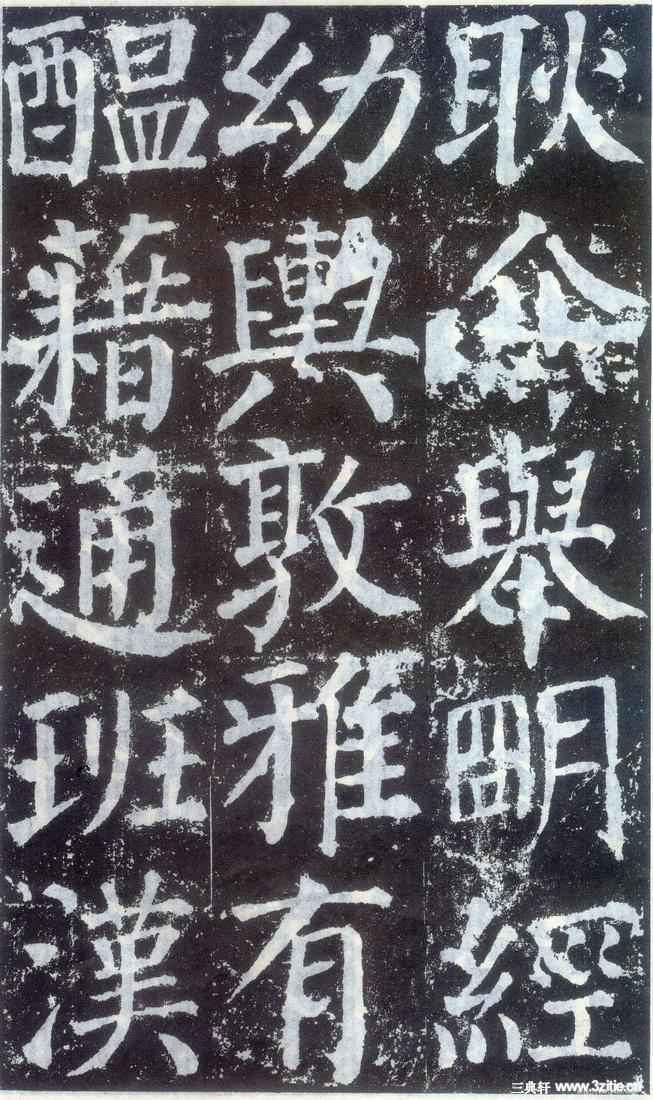 耿舉明經
幼輿敦雅有
醞藉通班漢
三典轩 www.3zitie.cn